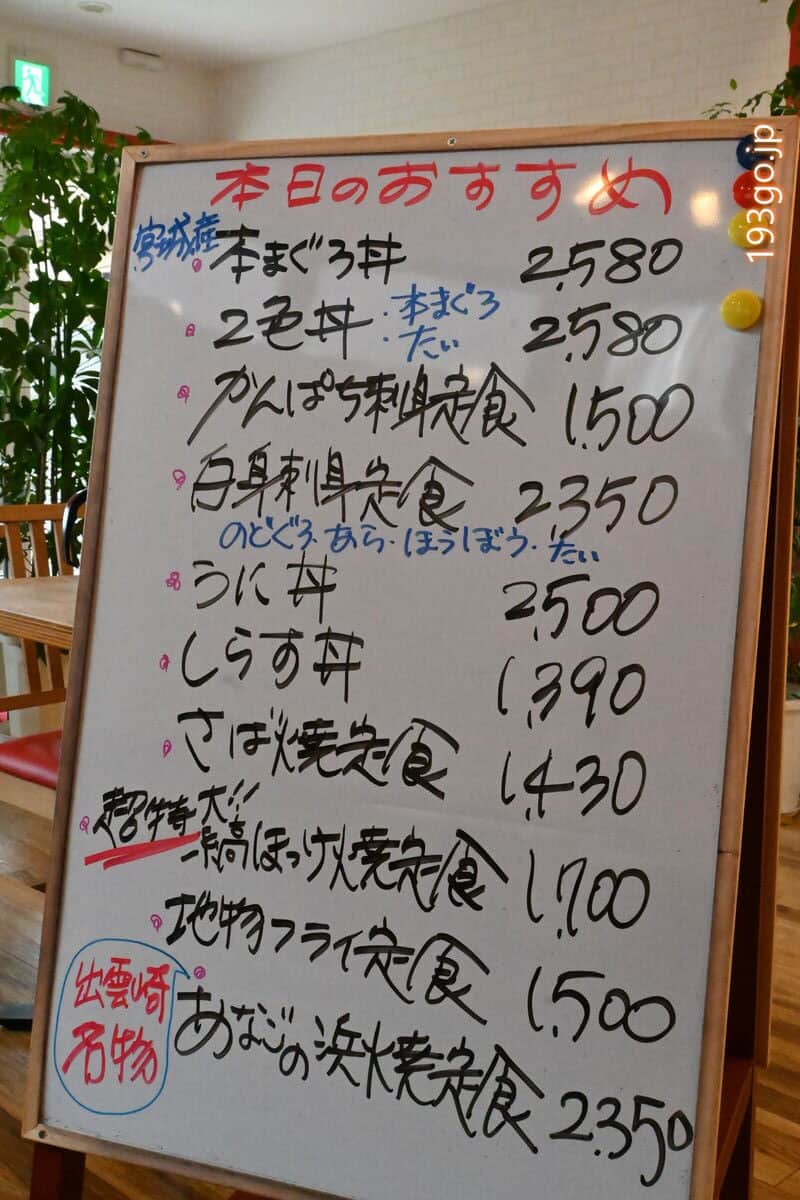 193go.jp
本日のおすすめ
宮城産
本まぐろ丼 2,580
2色丼 ・本まぐろ 2,580
・たい
かんぱち刺身定食 1,500
白身刺身定食 2,350
のどぐろ・あら・ほうぼう・たい
うに丼 2,500
しらす丼 1,390
さば焼定食 1,430
超特大!!
縞ほっけ焼定食 1,700
地物フライ定食 1,500
出雲崎
名物
あなごの浜焼定食 2,350